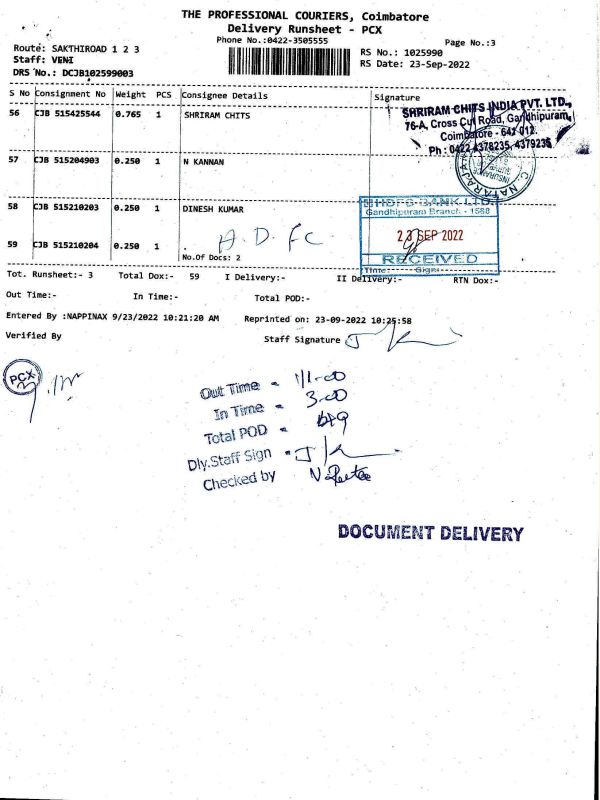 THE PROFESSIONAL COURIERS, Coimbatore
Delivery Runsheet - PCX
Phone No.:0422-3505555
Page No.:3
Route: SAKTHIROAD 1 2 3
RS No.: 1025990
Staff: VENI
RS Date: 23-Sep-2022
DRS No.: DCJB102599003
S No Consignment No Weight PCS Consignee Details Signature
56 CJB 515425544 0.765 1 SHRIRAM CHITS
SHRIRAM CHITS INDIA PVT. LTD.,
76-A, Cross Cut Road, Gandhipuram,
Coimbatore - 641 012.
Ph : 0422 4378235, 4379235
57 CJB 515204903 0.250 1 N KANNAN
INSURANCE
58 CJB 515210203 0.250 1 DINESH KUMAR
HDFC BANK LTD
Gandhipuram Branch - 1568
23 SEP 2022
RECEIVED
Time: Sign:
59 CJB 515210204 0.250 1
No.Of Docs: 2
Tot. Runsheet:- 3 Total Dox:- 59 I Delivery:- II Delivery:- RTN Dox:-
Out Time:- In Time:- Total POD:-
Entered By :NAPPINAX 9/23/2022 10:21:20 AM Reprinted on: 23-09-2022 10:25:58
Verified By Staff Signature
PCX
Out Time - 11-00
In Time - 3-00
Total POD -
Dly.Staff Sign -
Checked by
DOCUMENT DELIVERY